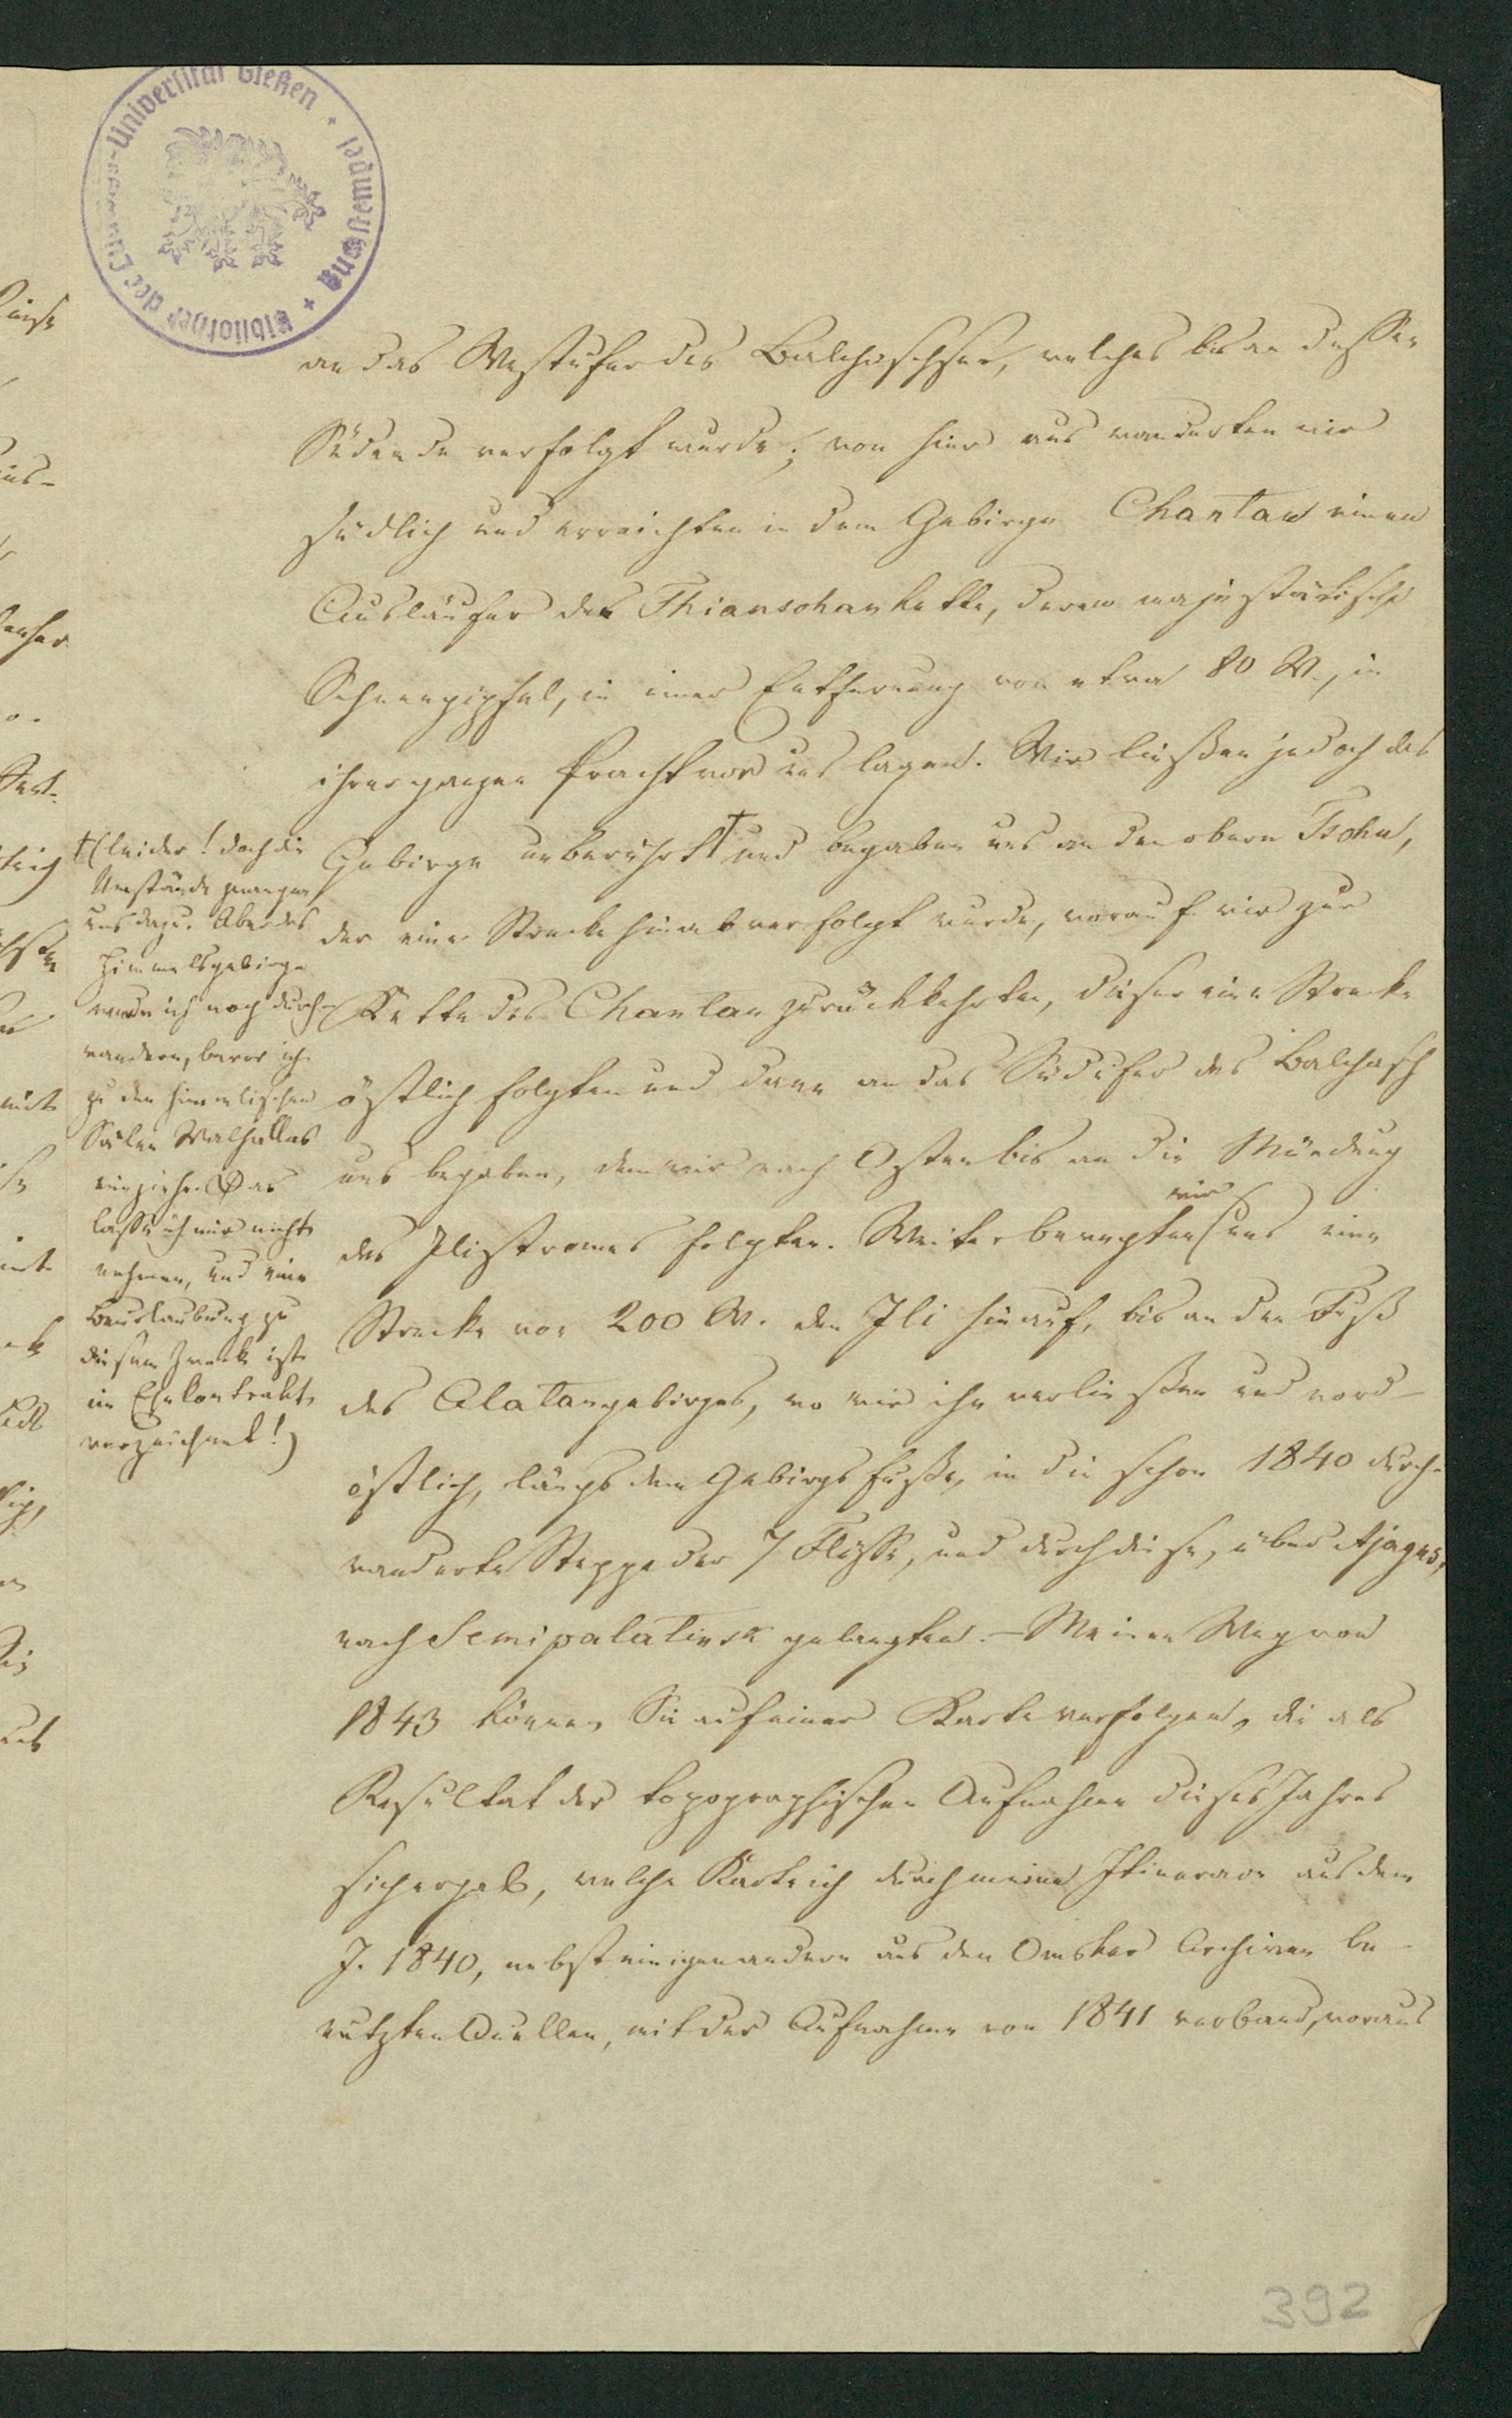 Bibliothek der Universität Gießen
an das Westufer des Balchaschsee, welches bis an dessen
Südende verfolgt wurde; von hier aus wanderten wir
südlich und erreichten in dem Gebirge Chantau einen
Ausläufer der Thianschankette, deren majestätische
Schneegipfel, in einer Entfernung von etwa 80 W., in
ihrer ganzen Pracht vor uns lagen. Wir ließen jedoch das
Gebirge unberührt † und begaben uns an den obern Tschu,
der eine Strecke hinab verfolgt wurde, worauf wir zur
Kette des Chantau zurückkehrten, dieser eine Strecke
östlich folgten und dann an das Südufer des Balchasch
uns begaben, dem wir nach Osten bis an die Mündung
des Ilistromes folgten. Weiter bewegten wir uns eine
Strecke von 200 W. den Ili hinauf, bis an den Fuß
des Alataugebirges, wo wir ihn verließen und nord-
östlich, längs dem Gebirgsfuße, in die schon 1840 durch-
wanderte Steppe der 7 Flüsse, und durch diese, über Ajagus,
nach Semipalatinsk gelangten. – Meinen Weg von
1843 können Sie auf einer Karte verfolgen, die als
Resultat der topographischen Aufnahme dieses Jahres
sich ergab, welche Karte ich durch meine Itinerare aus dem
J. 1840, nebst einigen andern aus den Omsker Archiven be-
nutzten Quellen, mit der Aufnahme von 1841 verband, woraus
† (leider! doch die
Umstände zwangen
uns dazu. Aber das
Himmelsgebirge
werde ich noch durch-
wandern, bevor ich
zu den himmlischen
Sälen Walhallas
einziehe. Das
lasse ich mir nicht
nehmen, und eine
Beurlaubung zu
diesem Zwecke ist
im Ehekontrakte
verzeichnet!)
392